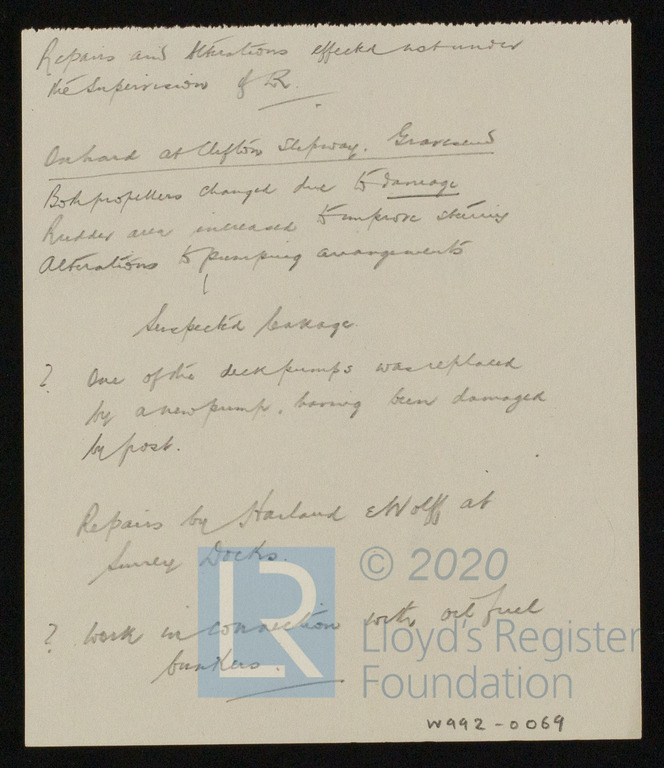 Repairs and Alterations effected not under
the Supervision of LR.
On hard at Clifton Slipway. Gravesend
Both propellers changed due to damage
Rudder area increased to improve steering
Alterations to pumping arrangements
Suspected leakage
? One of the deck pumps was replaced
by a new pump, having been damaged
by frost.
Repairs by Harland & Wolff at
Surrey Docks.
? Work in connection with oil fuel
bunkers.
LR © 2020
Lloyd's Register
Foundation
W992-0069